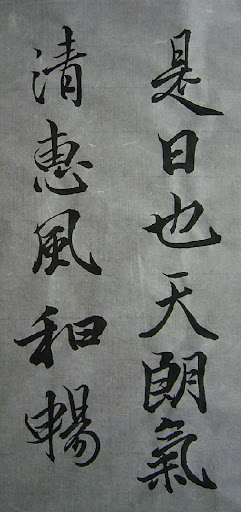 是日也天朗氣
清惠風和暢